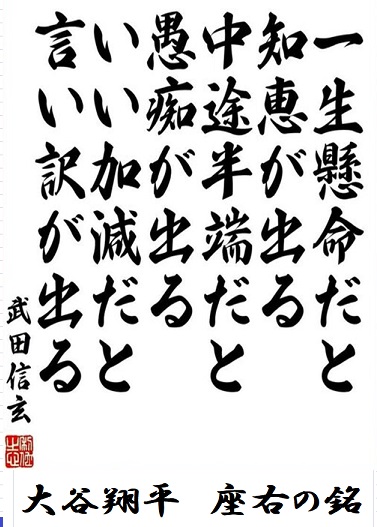 一生懸命だと
知恵が出る
中途半端だと
愚痴が出る
いい加減だと
言い訳が出る
武田信玄
大谷翔平 座右の銘